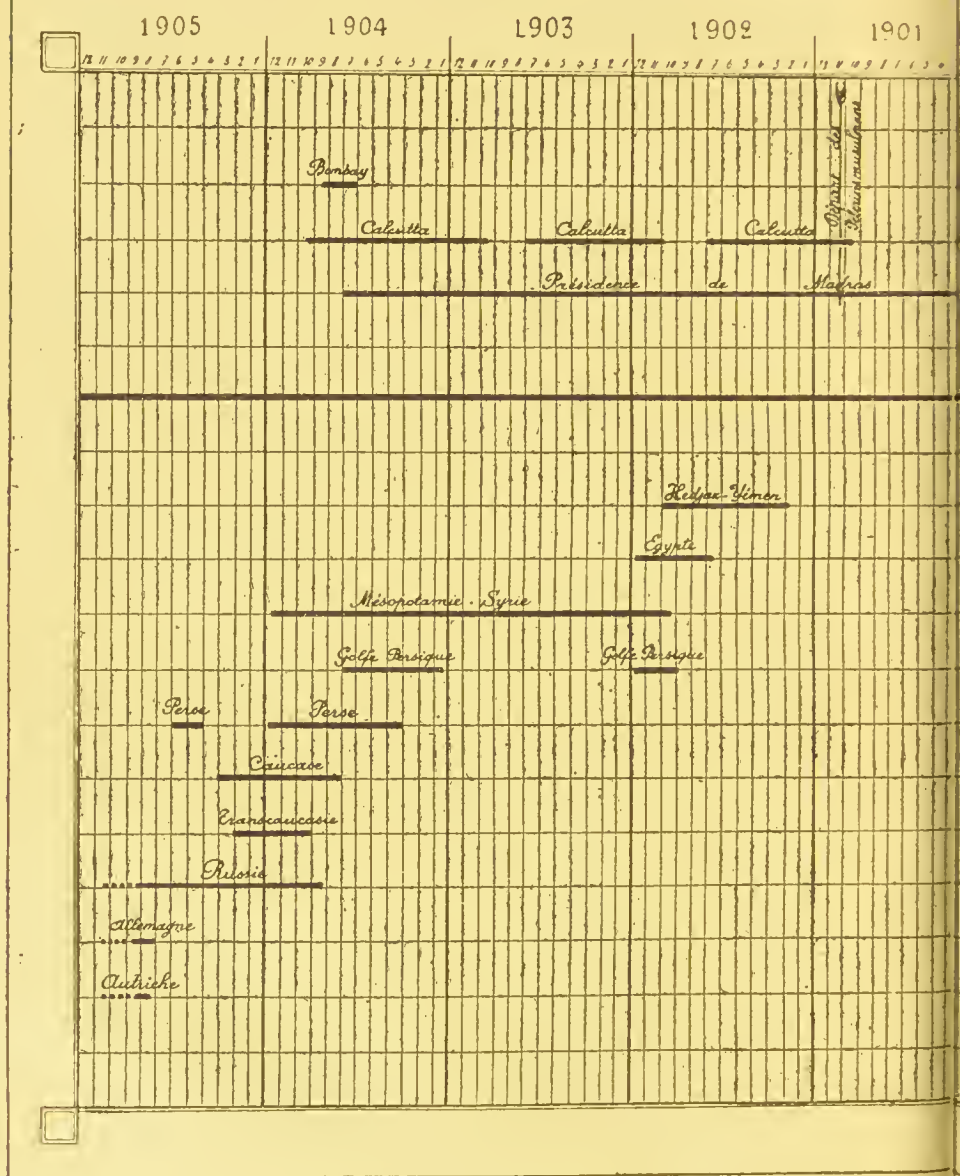 1905 1904 1903 1902 1901
12 11 10 9 8 7 6 5 4 3 2 1 12 11 10 9 8 7 6 5 4 3 2 1 12 11 10 9 8 7 6 5 4 3 2 1 12 11 10 9 8 7 6 5 4 3 2 1 12 11 10 9 8 7 6 5 4
Départ des
Pélerins musulmans
Bombay
Calcutta Calcutta Calcutta
Présidence de Madras
Hedjaz-Yémen
Egypte
Mésopotamie - Syrie
Golfe Persique Golfe Persique
Perse Perse
Caucase
Transcaucasie
Russie
Allemagne
Autriche